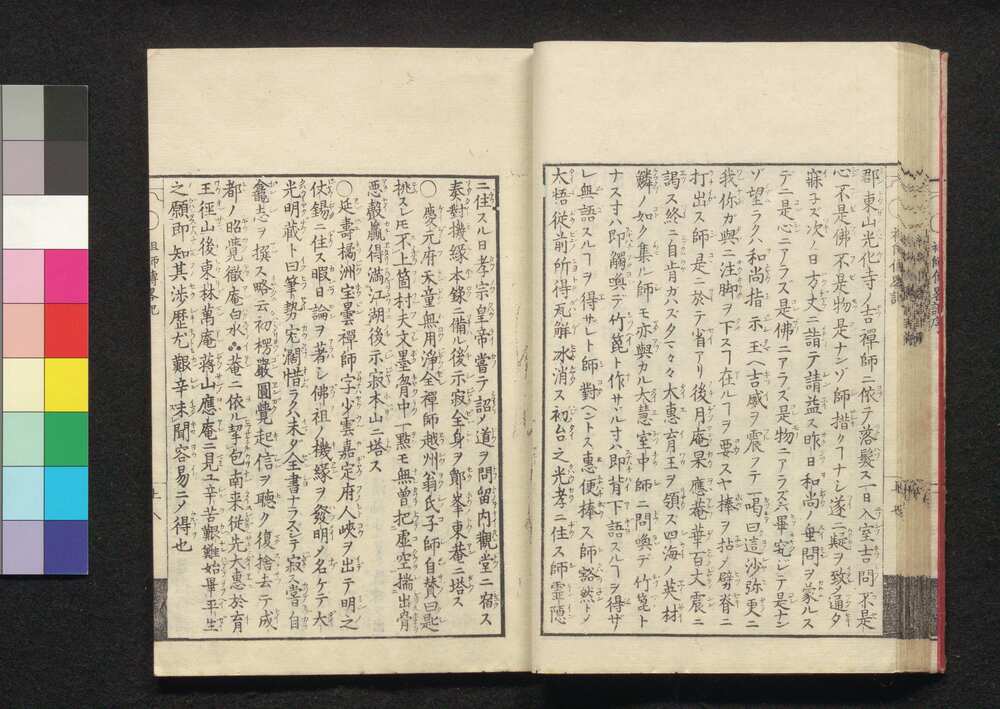 郡東山光化寺ノ吉禪師ニ依テ落髮ス一日入室吉問不是
心不是佛不是物是ナンゾ師措クコナシ遂ニ疑ヲ致ノ通夕
寐子ズ次ノ日方丈ニ詣テ請益ス昨日和尚ノ垂問ヲ蒙ルス
デニ是心ニアラズ是佛ニアラズ是物ニアラズ畢竟シテ是ナン
ゾ望ラクハ和尚指示玉ヘ吉威ヲ震フテ一喝曰這沙弥更ニ
我你ガ與ニ注脚ヲ下スコ在ルコヲ要スヤ捧ヲ拈ノ劈脊ニ
打出ス師是ニ於テ省アリ後月庵果應菴華百丈震ニ
謁ス終ニ自肯カハズタマ々大惠育王ヲ領ス四海ノ英材
鱗ノ如ク集ル師モ亦與カル大慧室中師ニ問喚テ竹篦ト
ナスオハ即觸喚テ竹篦ト作サヾルオハ即背下語スルコヲ得ザ
レ無語スルコヲ得ザレト師對ヘントス惠便捧ス師豁然ノ
大悟従前所得瓦解氷消ス初台之光孝ニ住ス師霊隠
ニ住スル日孝宗皇帝嘗テ詔ノ道ヲ問留内觀堂ニ宿ス
奏對機縁本錄ニ備ル後示寂全身ヲ鄮峯東菴ニ塔ス
○慶元府天童無用淨全禪師越州翁氏子師自賛曰匙
挑スレ𪜈不上箇村夫文墨胷中一點モ無曽把虚空揣出骨
悪聲贏得滿江湖後示寂本山ニ塔ス
○延壽橘洲宝曇禪師字少雲嘉定府人峽ヲ出テ明之
仗錫ニ住ス暇日論ヲ著シ佛祖ノ機縁ヲ發明ノ名ケテ大
光明蔵ト曰筆勢宏濶惜ラクハ未タ全書ナラスシテ寂ス嘗自
龕志ヲ撰ス略云初楞嚴圓覺起信ヲ聴ク復捨去テ成
都ノ昭覺徹庵白水菴ニ依ル挈包南来従先大惠於育
王徑山後東林萬庵蔣山應庵ニ見ユ辛苦艱難始畢平生
之願即知其渉歴尤艱辛未聞容易ニノ得也